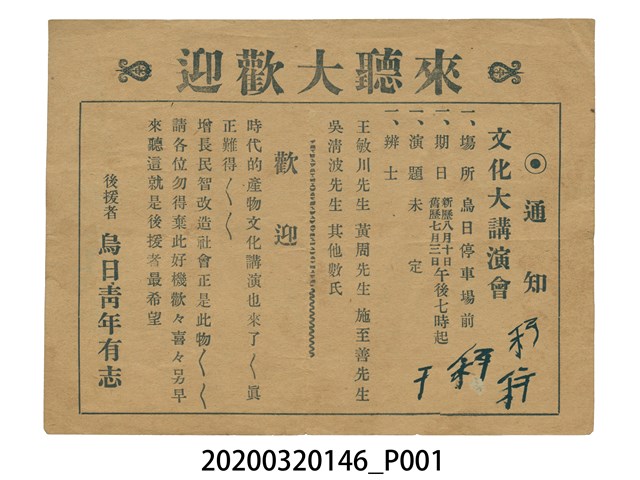 來聽大歡迎
◉通知
文化大講演會
一、塲所 烏日停車塲前
一、期日 新曆八月十日 舊曆七月三日 午後七時起
一、演題 未定
一、辨士
王敏川先生 黃周先生 施至善先生
吳淸波先生 其他數氏
歡迎
時代的產物文化講演也來了〱眞
正難得〱〱
增長民智改造社會正是此物〱〱
請各位勿得棄此好機歡々喜々早
來聽這就是後援者最希望
後援者 烏日靑年有志
20200320146_P001